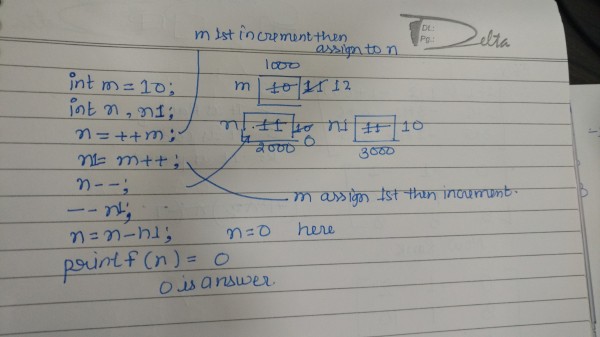 m 1st increment then
assign to n
Dt.:
Pg.:
Delta
1000
int m = 10;
m 10 11 12
int n, n1;
n = ++m;
n 11 10 0
n1 11 10
2000
3000
n1 = m++;
n--;
m assign 1st then increment.
--n1;
n = n-n1;
n=0 here
printf(n) = 0
0 is answer.